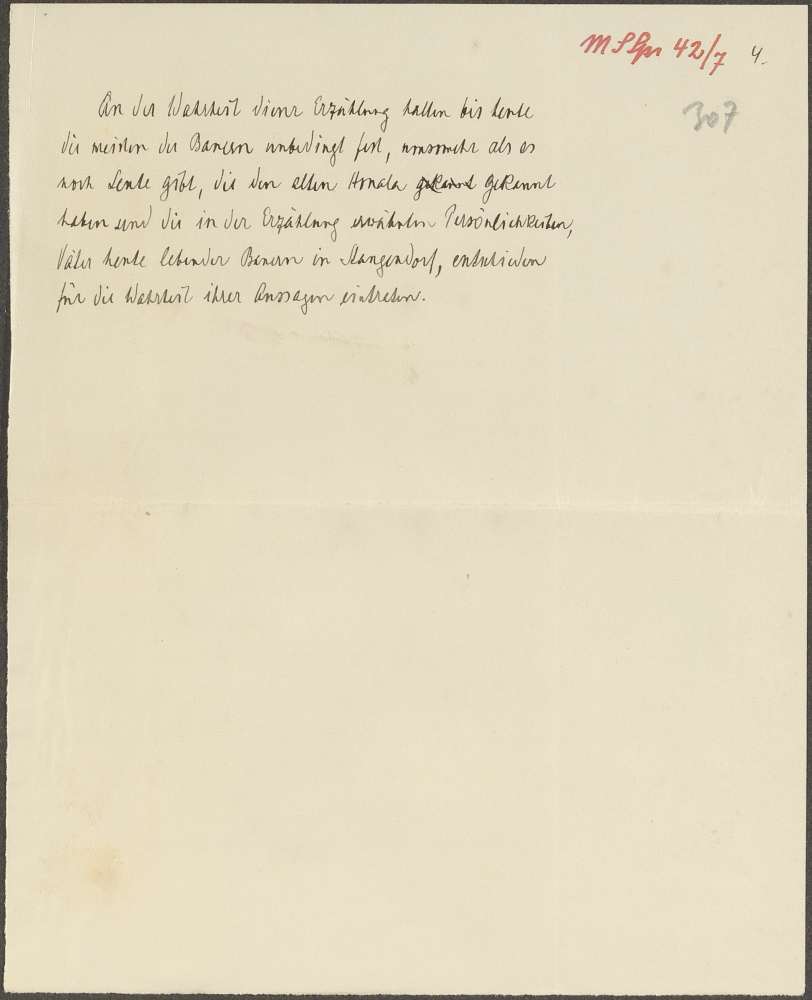 MSSpr 42/7 4.
307
An der Wahrheit dieser Erzählung halten bis heute
die meisten der Bauern unbedingt fest, umsomehr als es
noch Leute gibt, die den alten gekannt gekannt
haben und die in der Erzählung erwähnten Persönlichkeiten,
Väter heute lebender Bauern in Stangendorf, entschieden
für die Wahrheit ihrer Aussagen eintreten.